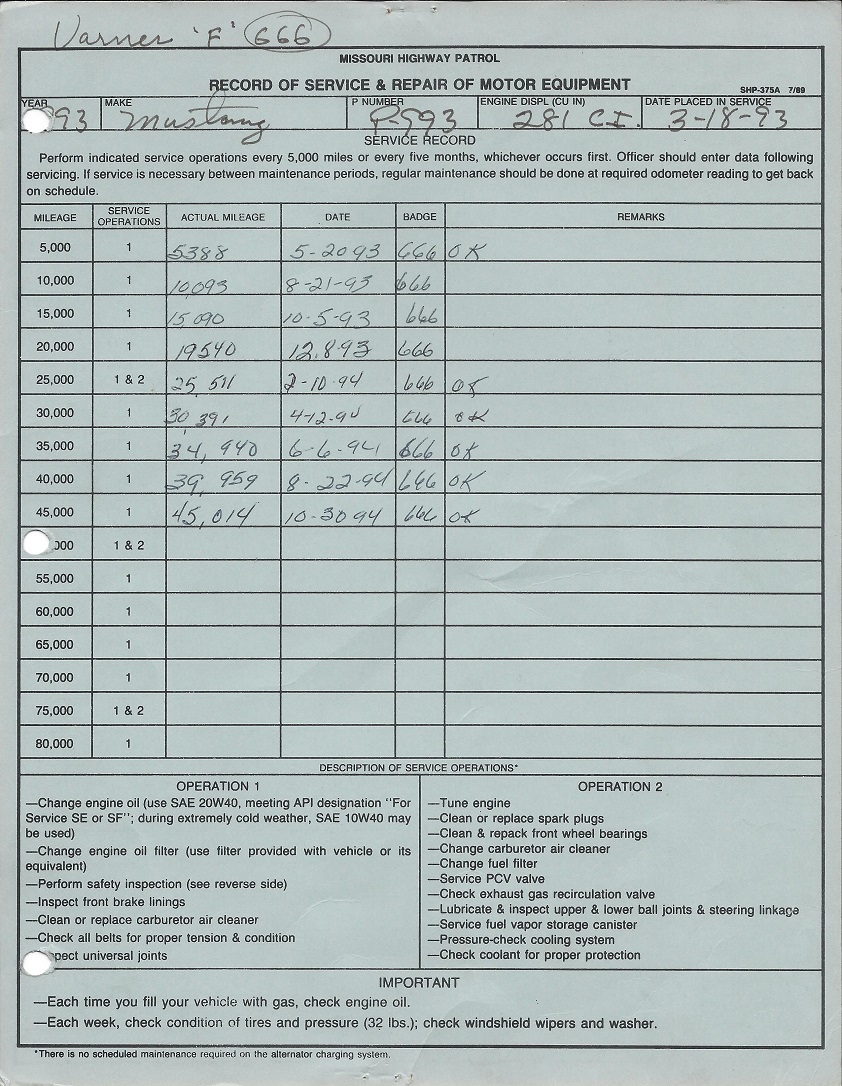 Varner 'F' 666
MISSOURI HIGHWAY PATROL
RECORD OF SERVICE & REPAIR OF MOTOR EQUIPMENT
SHP-375A 7/89
YEAR MAKE P NUMBER ENGINE DISPL (CU IN) DATE PLACED IN SERVICE
93 Mustang P-993 281 C.I. 3-18-93
SERVICE RECORD
Perform indicated service operations every 5,000 miles or every five months, whichever occurs first. Officer should enter data following
servicing. If service is necessary between maintenance periods, regular maintenance should be done at required odometer reading to get back
on schedule.
MILEAGE SERVICE OPERATIONS ACTUAL MILEAGE DATE BADGE REMARKS
5,000 1 5388 5-20 93 666 OK
10,000 1 10,093 8-21-93 666
15,000 1 15,090 10-5-93 666
20,000 1 19540 12.8.93 666
25,000 1 & 2 25,511 2-10-94 666 OK
30,000 1 30,391 4-12-94 666 OK
35,000 1 34,940 6-6-94 666 OK
40,000 1 39,959 8-22-94 666 OK
45,000 1 45,014 10-30 94 666 OK
000 1 & 2
55,000 1
60,000 1
65,000 1
70,000 1
75,000 1 & 2
80,000 1
DESCRIPTION OF SERVICE OPERATIONS*
OPERATION 1
—Change engine oil (use SAE 20W40, meeting API designation "For
Service SE or SF"; during extremely cold weather, SAE 10W40 may
be used)
—Change engine oil filter (use filter provided with vehicle or its
equivalent)
—Perform safety inspection (see reverse side)
—Inspect front brake linings
—Clean or replace carburetor air cleaner
—Check all belts for proper tension & condition
pect universal joints
OPERATION 2
—Tune engine
—Clean or replace spark plugs
—Clean & repack front wheel bearings
—Change carburetor air cleaner
—Change fuel filter
—Service PCV valve
—Check exhaust gas recirculation valve
—Lubricate & inspect upper & lower ball joints & steering linkage
—Service fuel vapor storage canister
—Pressure-check cooling system
—Check coolant for proper protection
IMPORTANT
—Each time you fill your vehicle with gas, check engine oil.
—Each week, check condition of tires and pressure (32 lbs.); check windshield wipers and washer.
*There is no scheduled maintenance required on the alternator charging system.